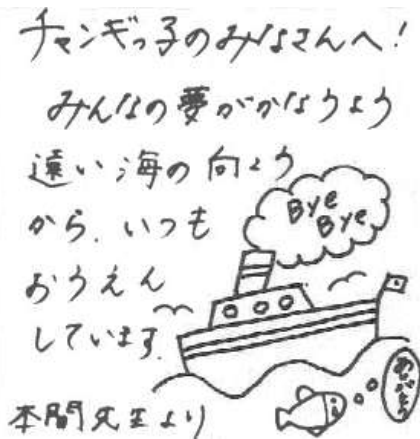 チャンギっ子のみなさんへ!
みんなの夢がかなうよう
遠い海の向こう
から、いつも
おうえん
しています。
本間先生より
Bye
Bye
ありがとう